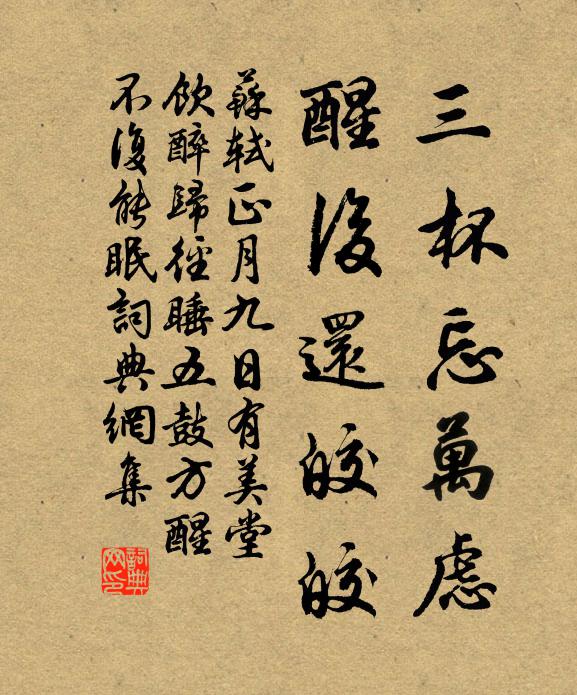 三杯忘萬慮
醒後還皎皎
蘇軾正月九日有美堂
飲醉歸徑睡五鼓方醒
不復能眠詞典網集
詞典网印